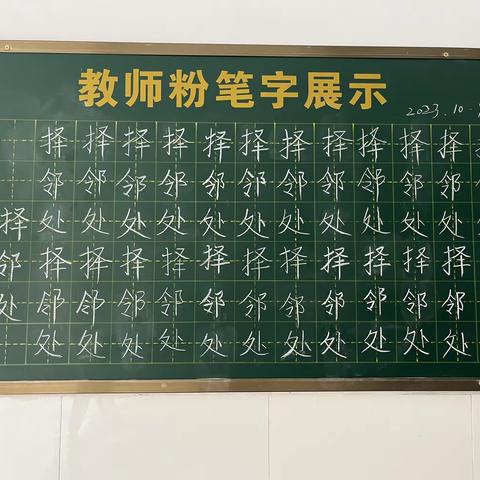 教师粉笔字展示
2023.10.
择择择择择择择择择择择
邻邻邻邻邻邻邻邻邻邻邻
择处处处处处处处处处处处
邻择择择择择择择择择择择
处邻邻邻邻邻邻邻邻邻邻邻
处处处处处处处处处处处